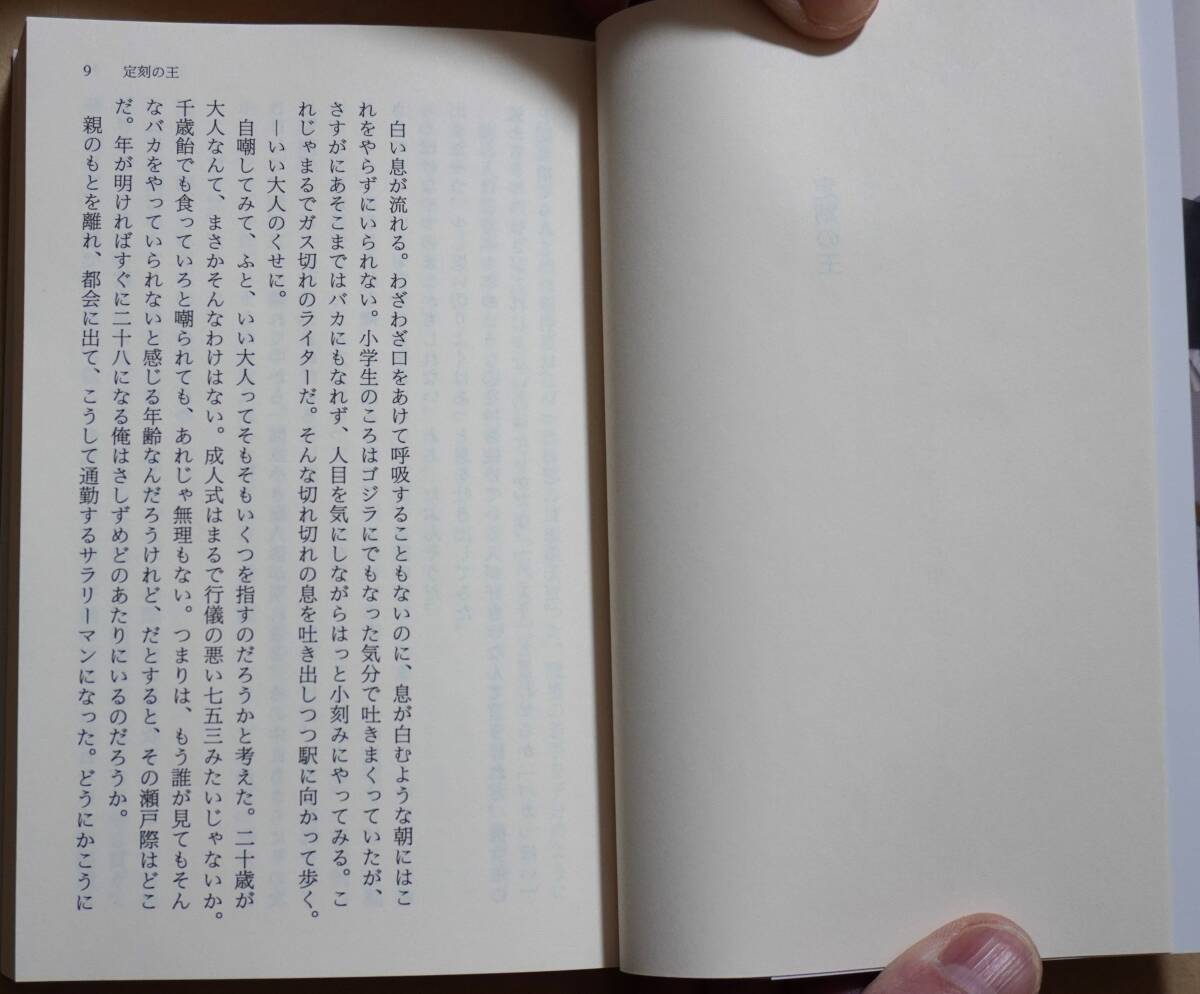 9 定刻の王
白い息が流れる。わざわざ口をあけて呼吸することもないのに、息が白むような朝にはこ
れをやらずにいられない。小学生のころはゴジラにでもなった気分で吐きまくっていたが、
さすがにあそこまではバカにもなれず、人目を気にしながらはっと小刻みにやってみる。こ
れじゃまるでガス切れのライターだ。そんな切れ切れの息を吐き出しつつ駅に向かって歩く。
―いい大人のくせに。
自嘲してみて、ふと、いい大人ってそもそもいくつを指すのだろうかと考えた。二十歳が
大人なんて、まさかそんなわけはない。成人式はまるで行儀の悪い七五三みたいじゃないか。
千歳飴でも食っていろと嘲られても、あれじゃ無理もない。つまりは、もう誰が見てもそん
なバカをやっていられないと感じる年齢なんだろうけれど、だとすると、その瀬戸際はどこ
だ。年が明ければすぐに二十八になる俺はさしずめどのあたりにいるのだろうか。
親のもとを離れ、都会に出て、こうして通勤するサラリーマンになった。どうにかこうに